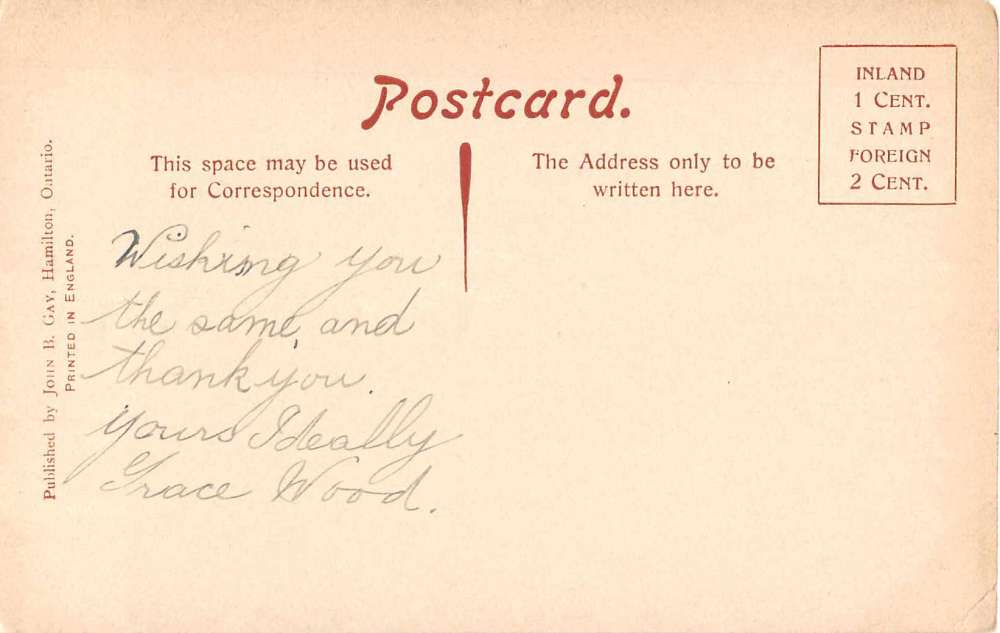 Postcard.
This space may be used
for Correspondence.
The Address only to be
written here.
INLAND
1 CENT.
STAMP
FOREIGN
2 CENT.
Published by JOHN B. GAY, Hamilton, Ontario.
PRINTED IN ENGLAND.
Wishing you
the same, and
thank you.
Yours Ideally
Grace Wood.